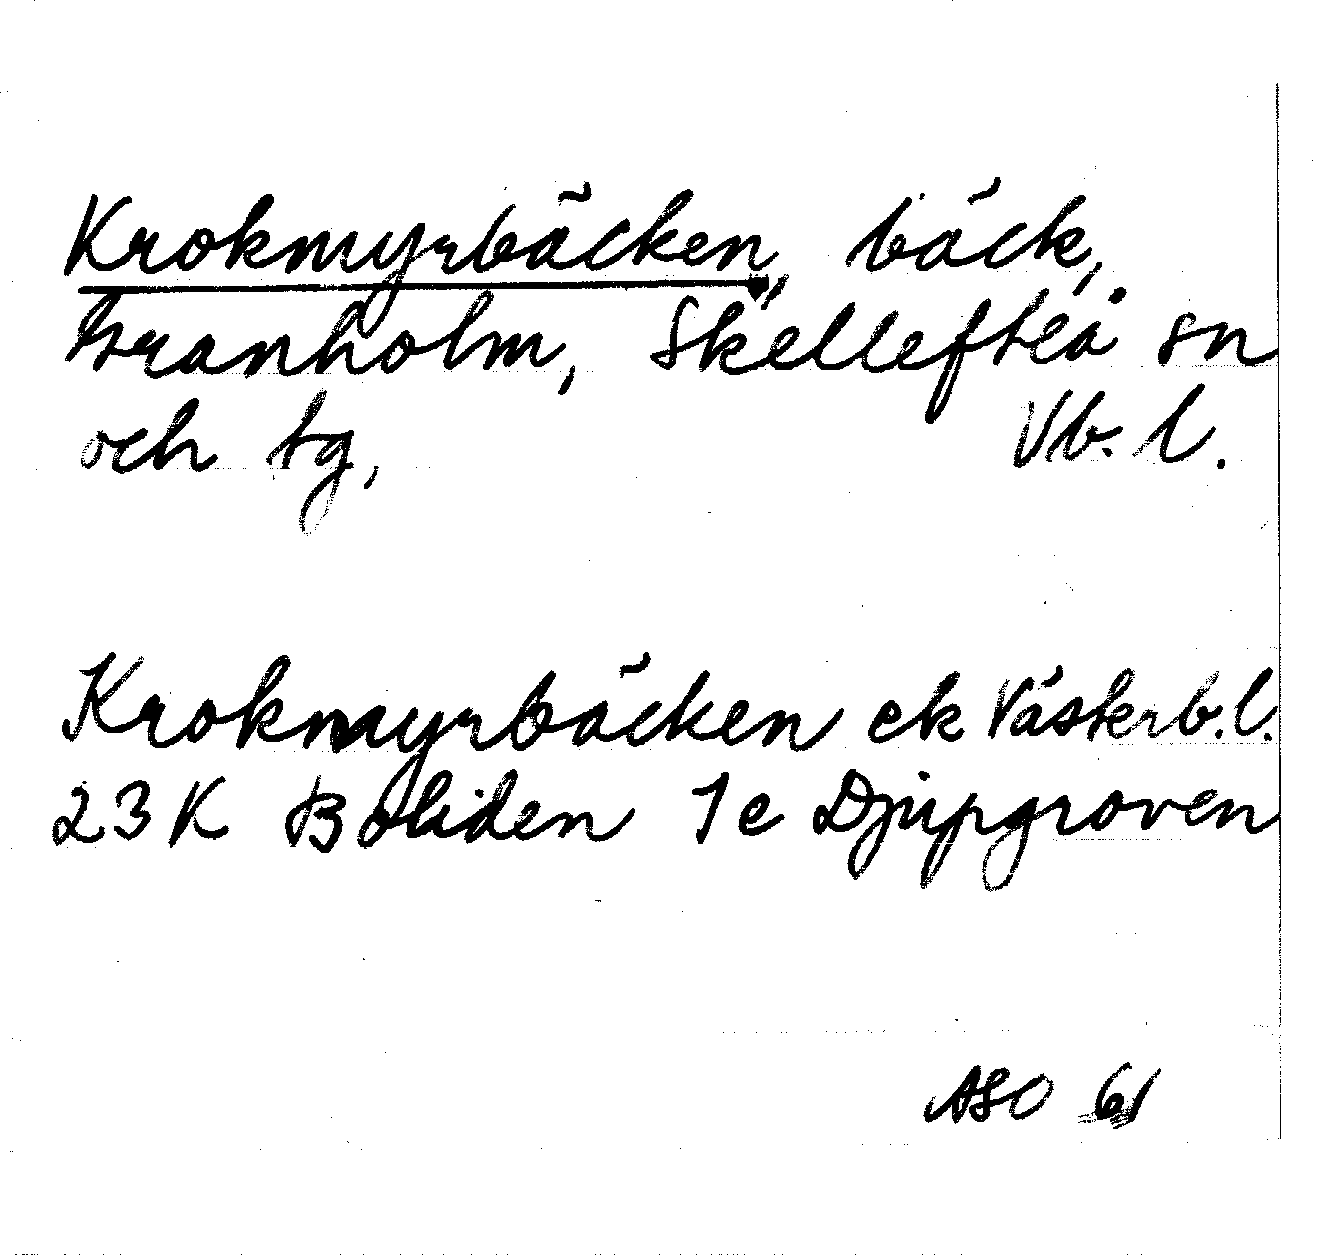 Krokmyrbäcken, bäck,
Granholm, Skellefteå sn
och tg, Vb. l.
Krokmyrbäcken ek Västerb.l.
23 K Boliden 1e Djupgroven
ASO 61